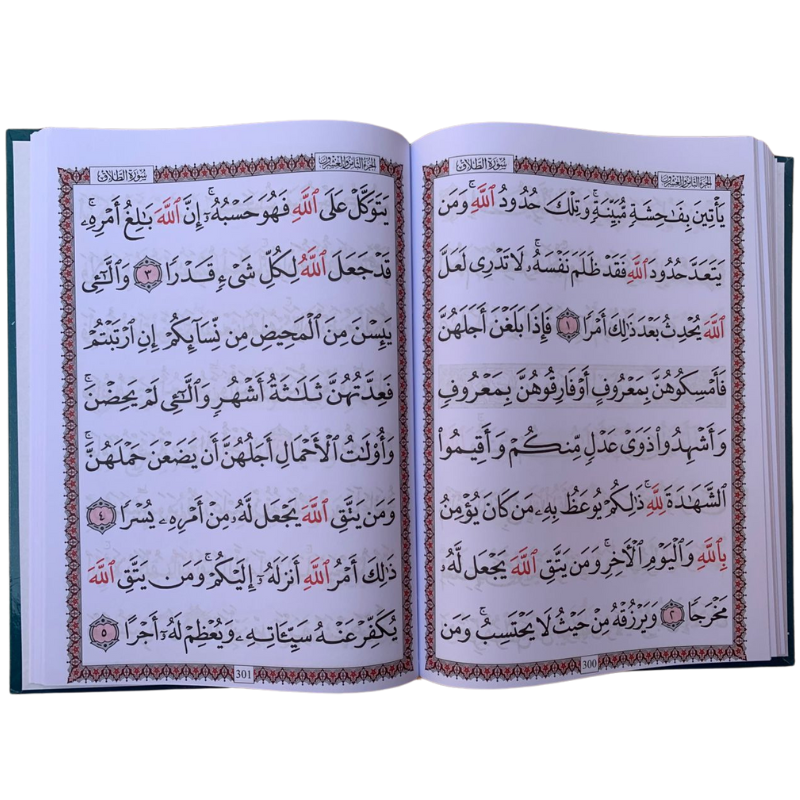 الجزء الثامن والعشرون
سُورَةُ الطَّلَاقِ
يَأْتِينَ بِفَٰحِشَةٖ مُّبَيِّنَةٖۚ وَتِلۡكَ حُدُودُ ٱللَّهِۚ وَمَن
يَتَعَدَّ حُدُودَ ٱللَّهِ فَقَدۡ ظَلَمَ نَفۡسَهُۥۚ لَا تَدۡرِي لَعَلَّ
ٱللَّهَ يُحۡدِثُ بَعۡدَ ذَٰلِكَ أَمۡرٗا ١ فَإِذَا بَلَغۡنَ أَجَلَهُنَّ
فَأَمۡسِكُوهُنَّ بِمَعۡرُوفٍ أَوۡ فَارِقُوهُنَّ بِمَعۡرُوفٖ
وَأَشۡهِدُواْ ذَوَيۡ عَدۡلٖ مِّنكُمۡ وَأَقِيمُواْ
ٱلشَّهَٰدَةَ لِلَّهِۚ ذَٰلِكُمۡ يُوعَظُ بِهِۦ مَن كَانَ يُؤۡمِنُ
بِٱللَّهِ وَٱلۡيَوۡمِ ٱلۡأٓخِرِۚ وَمَن يَتَّقِ ٱللَّهَ يَجۡعَل لَّهُۥ
مَخۡرَجٗا ٢ وَيَرۡزُقۡهُ مِنۡ حَيۡثُ لَا يَحۡتَسِبُۚ وَمَن
300
الجزء الثامن والعشرون
سُورَةُ الطَّلَاقِ
يَتَوَكَّلۡ عَلَى ٱللَّهِ فَهُوَ حَسۡبُهُۥٓۚ إِنَّ ٱللَّهَ بَٰلِغُ أَمۡرِهِۦۚ
قَدۡ جَعَلَ ٱللَّهُ لِكُلِّ شَيۡءٖ قَدۡرٗا ٣ وَٱلَّٰٓـِٔي
يَئِسۡنَ مِنَ ٱلۡمَحِيضِ مِن نِّسَآئِكُمۡ إِنِ ٱرۡتَبۡتُمۡ
فَعِدَّتُهُنَّ ثَلَٰثَةُ أَشۡهُرٖ وَٱلَّٰٓـِٔي لَمۡ يَحِضۡنَۚ
وَأُوْلَٰتُ ٱلۡأَحۡمَالِ أَجَلُهُنَّ أَن يَضَعۡنَ حَمۡلَهُنَّۚ
وَمَن يَتَّقِ ٱللَّهَ يَجۡعَل لَّهُۥ مِنۡ أَمۡرِهِۦ يُسۡرٗا ٤
ذَٰلِكَ أَمۡرُ ٱللَّهِ أَنزَلَهُۥٓ إِلَيۡكُمۡۚ وَمَن يَتَّقِ ٱللَّهَ
يُكَفِّرۡ عَنۡهُ سَيِّـَٔاتِهِۦ وَيُعۡظِمۡ لَهُۥٓ أَجۡرًا ٥
301